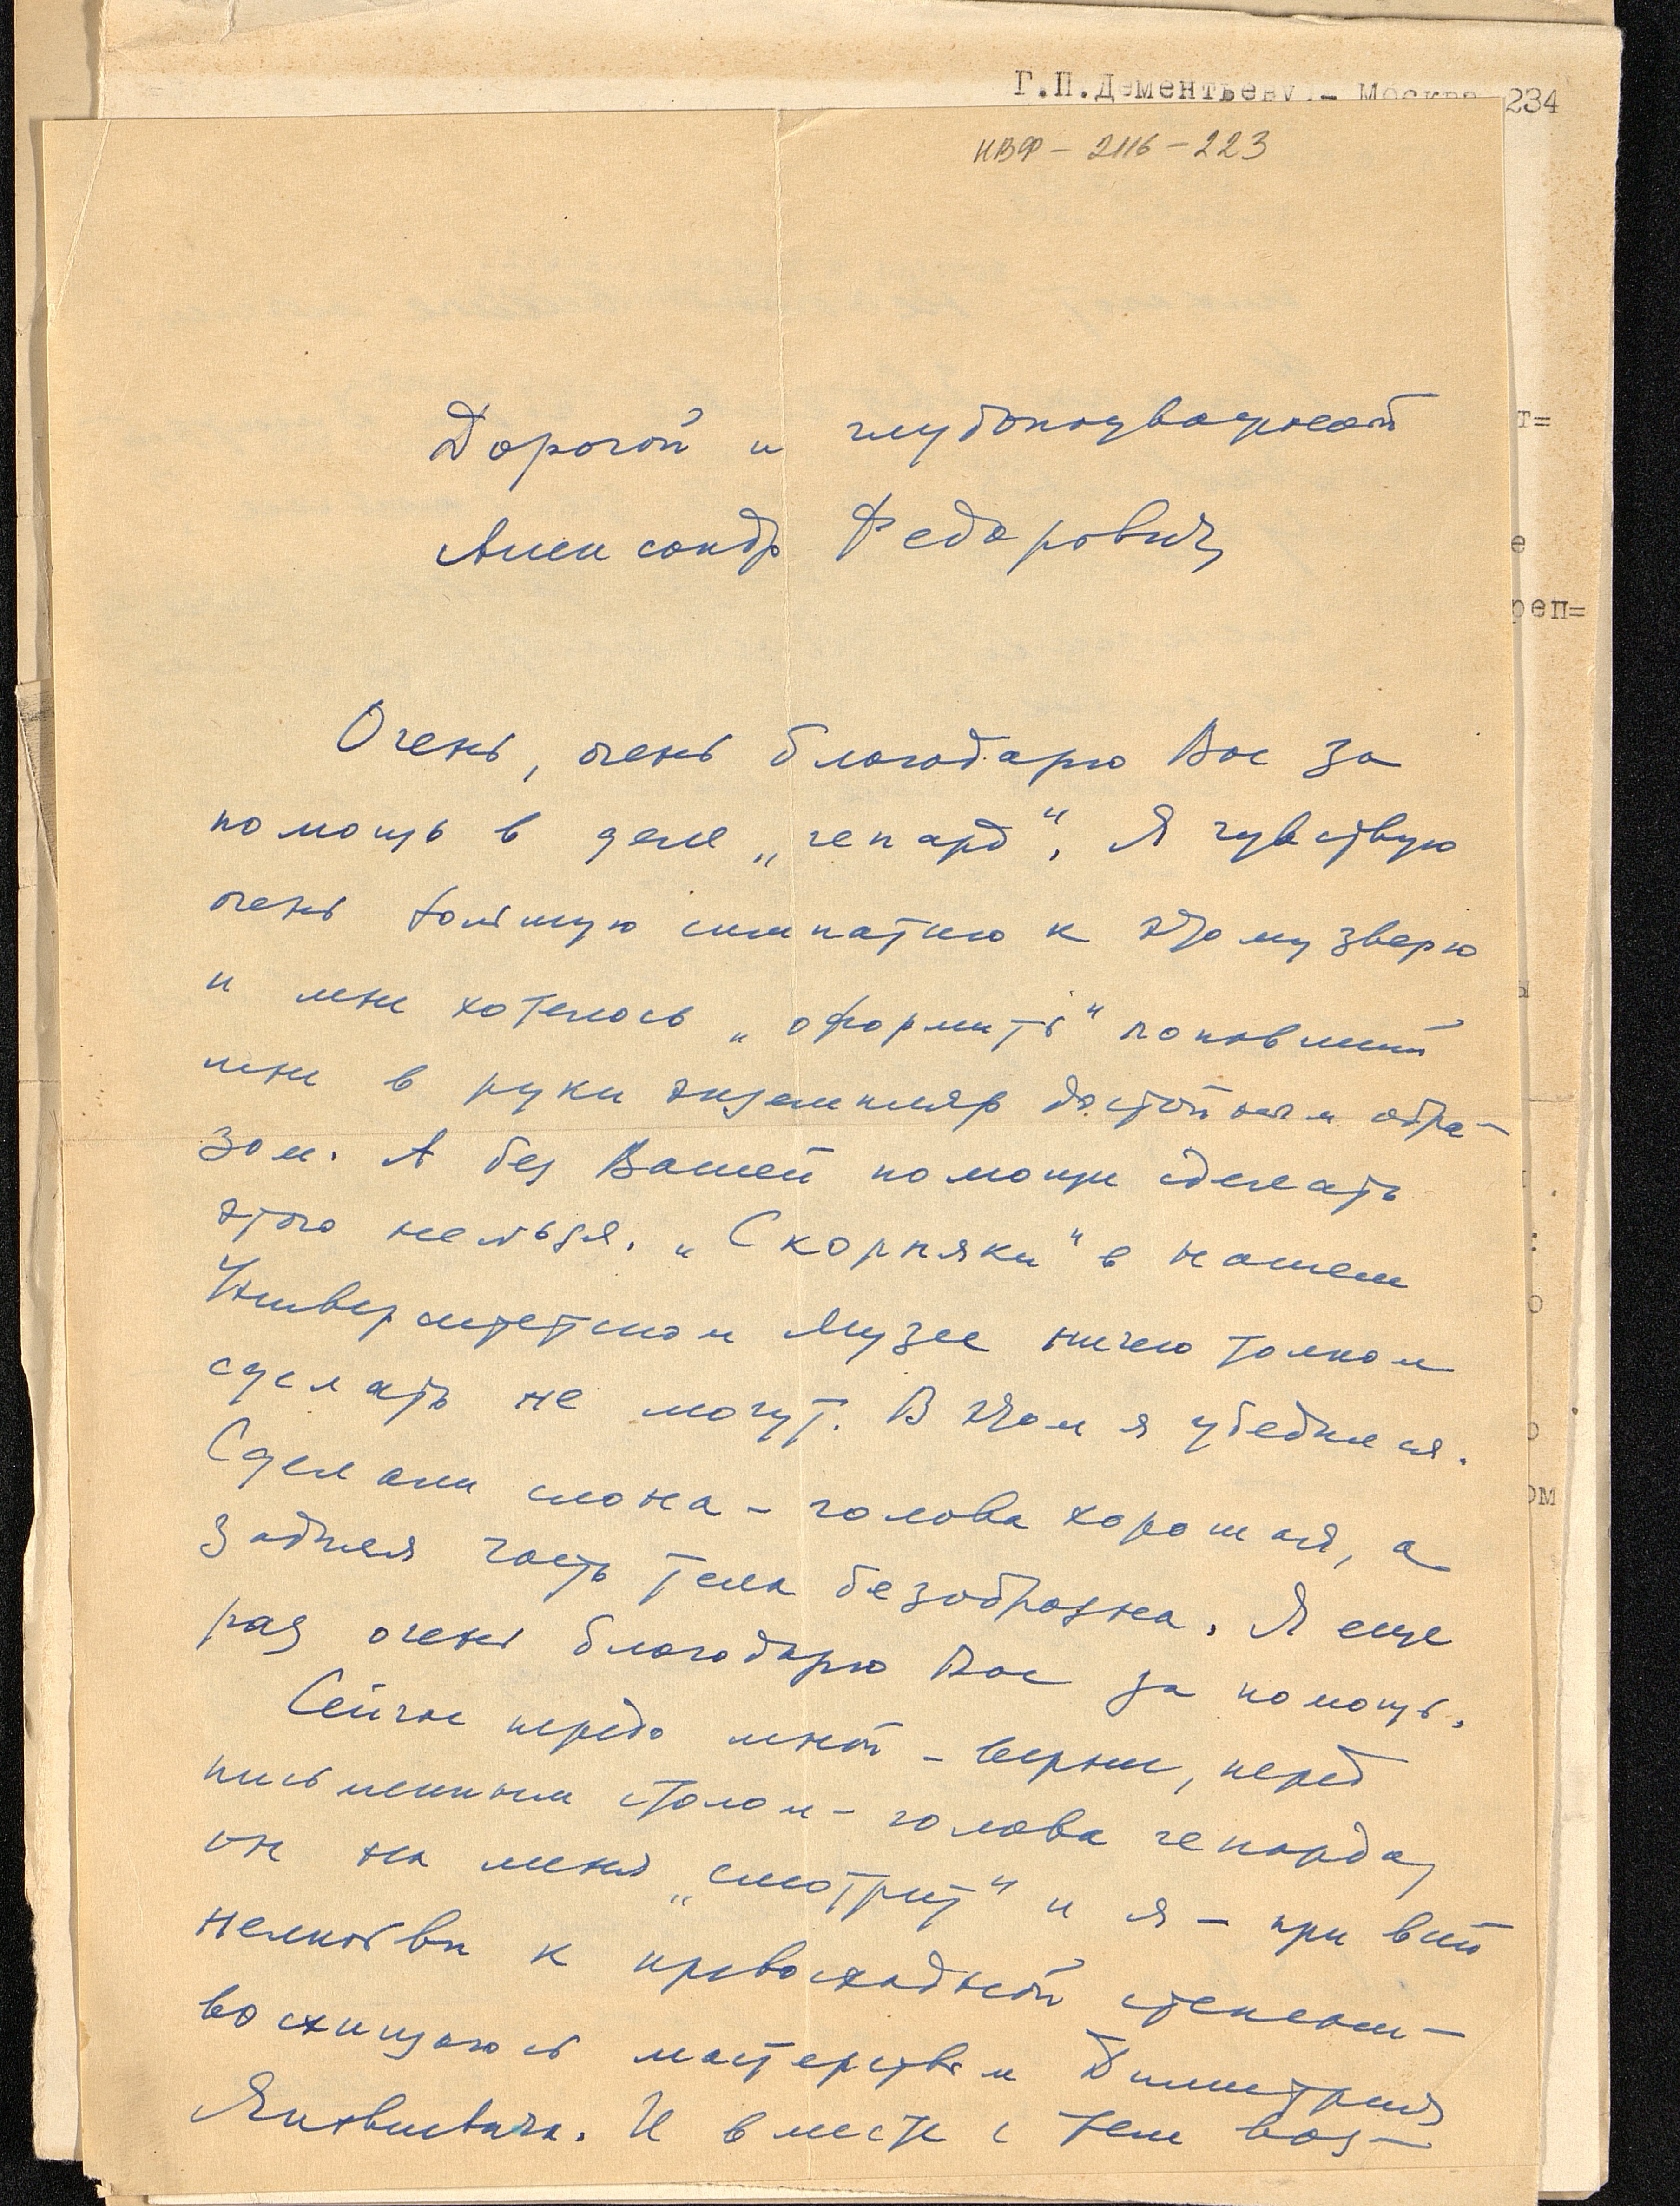 Г.П.Дементьеву.- Москва 234
КВФ - 2116 - 223
Дорогой и глубокоуважаемый
Александр Федорович,
т=
е
реп=
Очень, очень благодарю Вас за
помощь в деле „гепард". Я чувствую
очень большую симпатию к этому зверю
и мне хотелось „оформить" попавший
мне в руки экземпляр достойным обра-
зом. А без Вашей помощи сделать
этого нельзя. „Скорняки" в нашем
Университетском Музее ничего толком
сделать не могут. В этом я убедился.
Сделали слона - голова хорошая, а
задняя часть тела безобразна. Я еще
раз очень благодарю Вас за помощь.
Сейчас передо мной - вернее, перед
письменным столом - голова гепарда,
он на меня „смотрит" и я - при всей
нелюбви к превосходной степени -
восхищаюсь мастерством Димитрия
Яковлевича. И вместе с тем воз-
ом